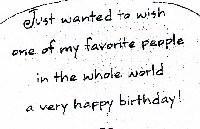 Just wanted to wish
one of my favorite people
in the whole world
a very happy birthday!